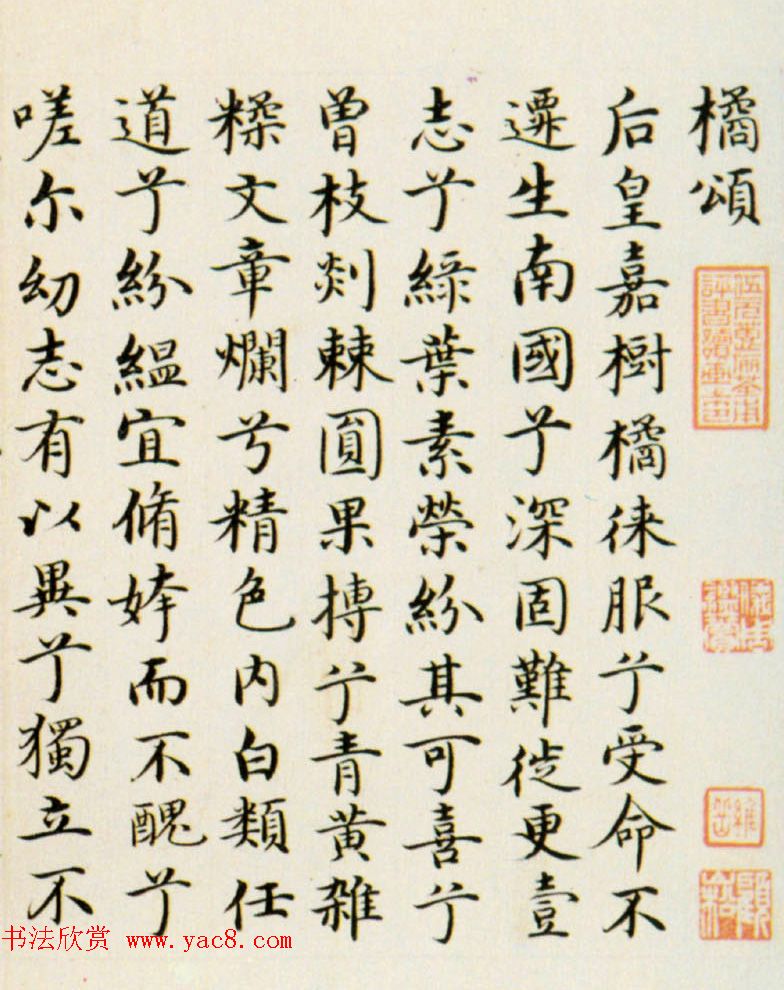 橘頌
后皇嘉樹橘徠服兮受命不
遷生南國兮深固難徙更壹
志兮綠葉素榮紛其可喜兮
曾枝剡棘圓果摶兮青黄雜
糅文章爛兮精色内白類任
道兮紛緼宜脩姱而不醜兮
嗟尔幼志有以異兮獨立不
书法欣赏 www.yac8.com